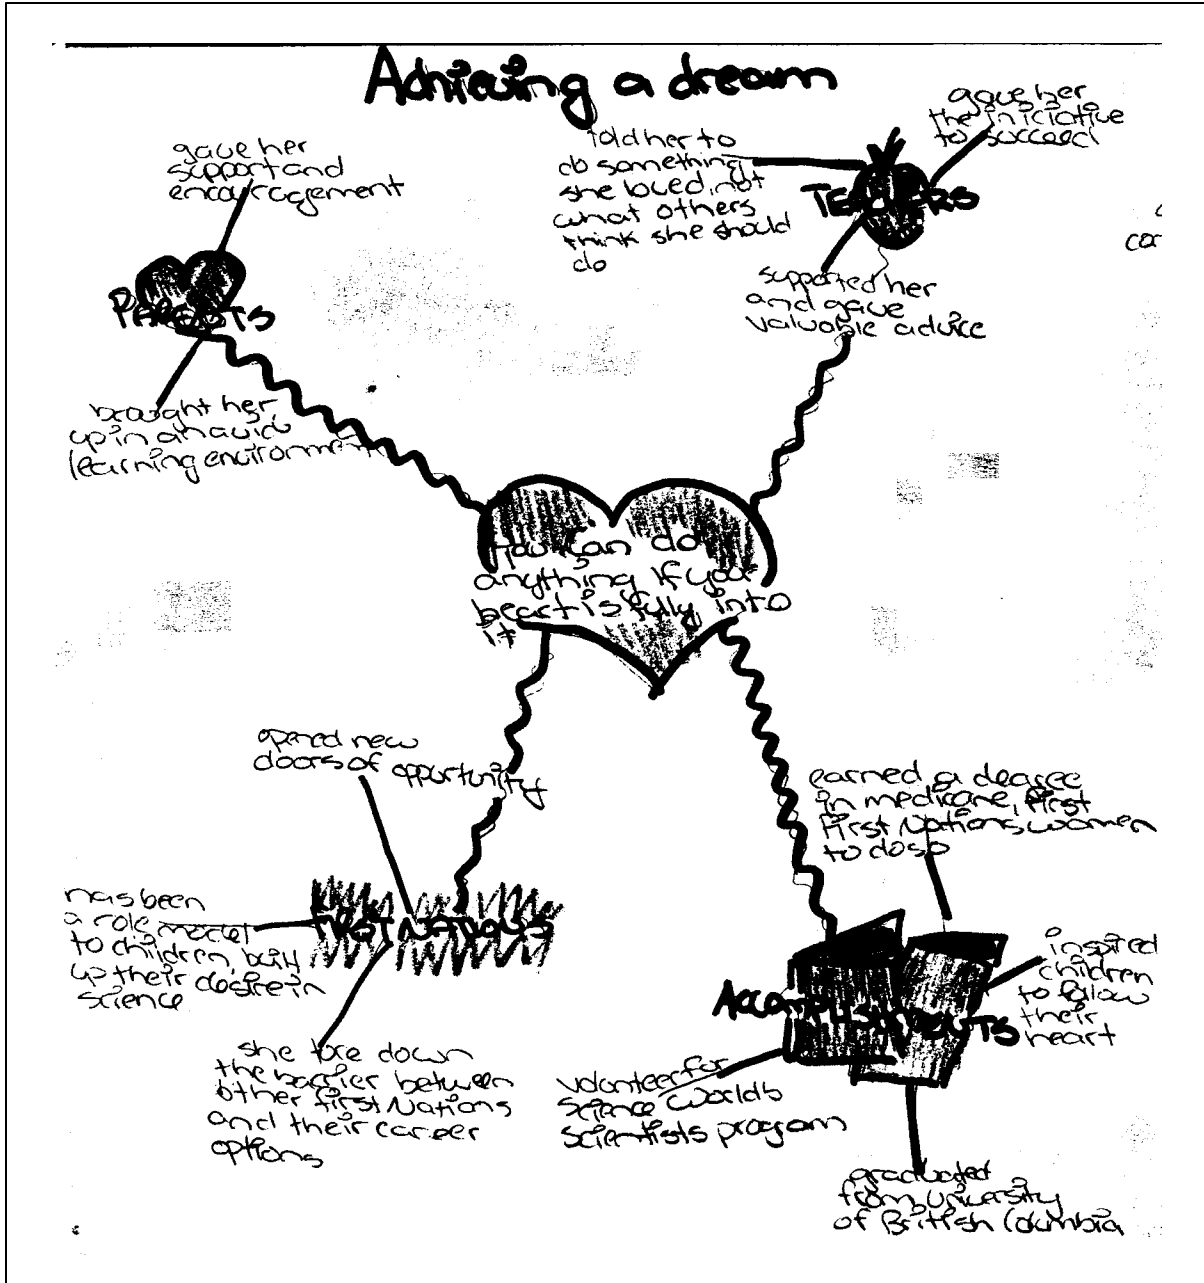 Achieving a dream
gave her
support and
encouragement
PARENTS
brought her
up in an avid
learning environment
told her to
do something
she loved, not
what others
think she should
do
TEACHERS
gave her
the iniciative
to succeed
supported her
and gave
valuable advice
You can do
anything if your
heart is fully into
it
opened new
doors of opportunity
FIRST NATIONS
has been
a role model
to children, built
up their desire in
science
she tore down
the barrier between
other first Nations
and their career
options
earned a degree
in medicine, first
First Nations women
to do so
ACCOMPLISHMENTS
inspired
children
to follow
their
heart
volunteer for
science world's
scientists program
graduated
from university
of British Columbia